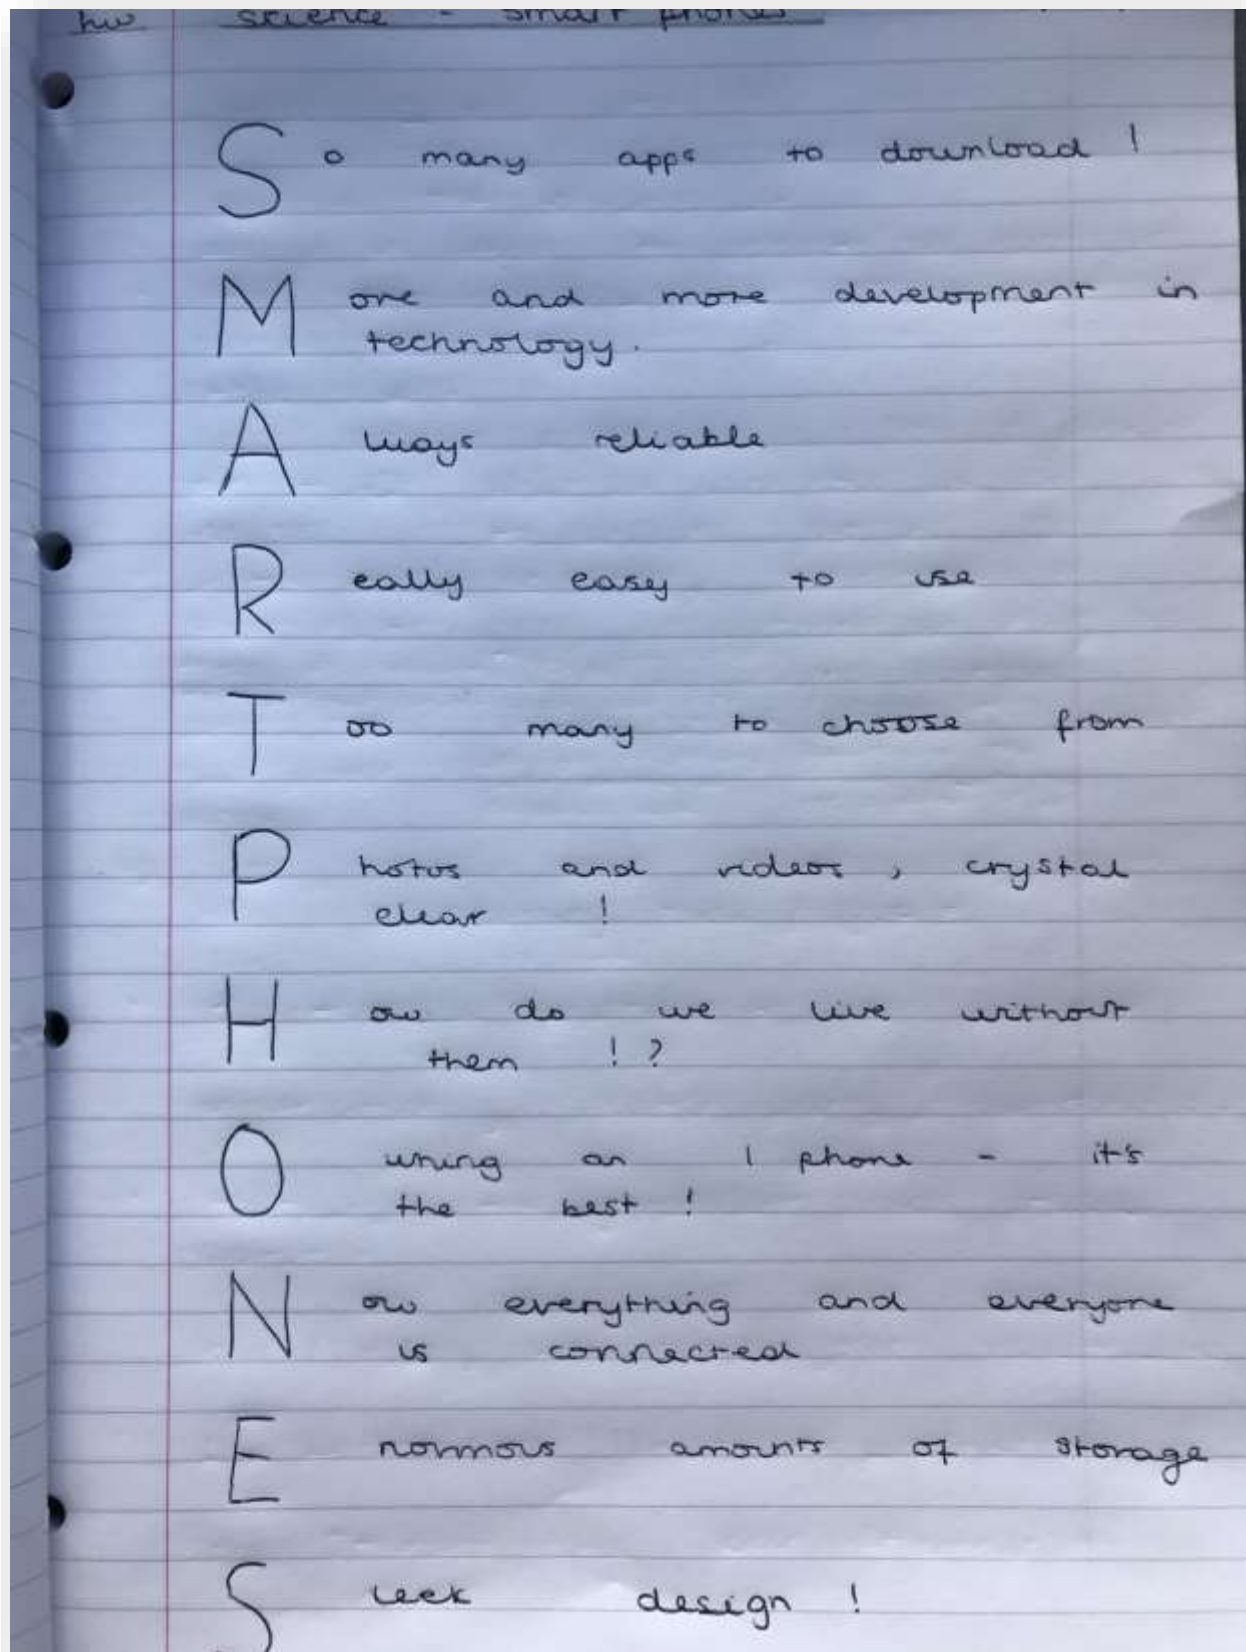 hw science - smart phones
So many apps to download !
More and more development in
technology.
Always reliable
Really easy to use
Too many to choose from
Photos and videos , crystal
clear !
How do we live without
them ! ?
Owning an I phone - it's
the best !
Now everything and everyone
is connected
Enormous amounts of storage
Sleek design !